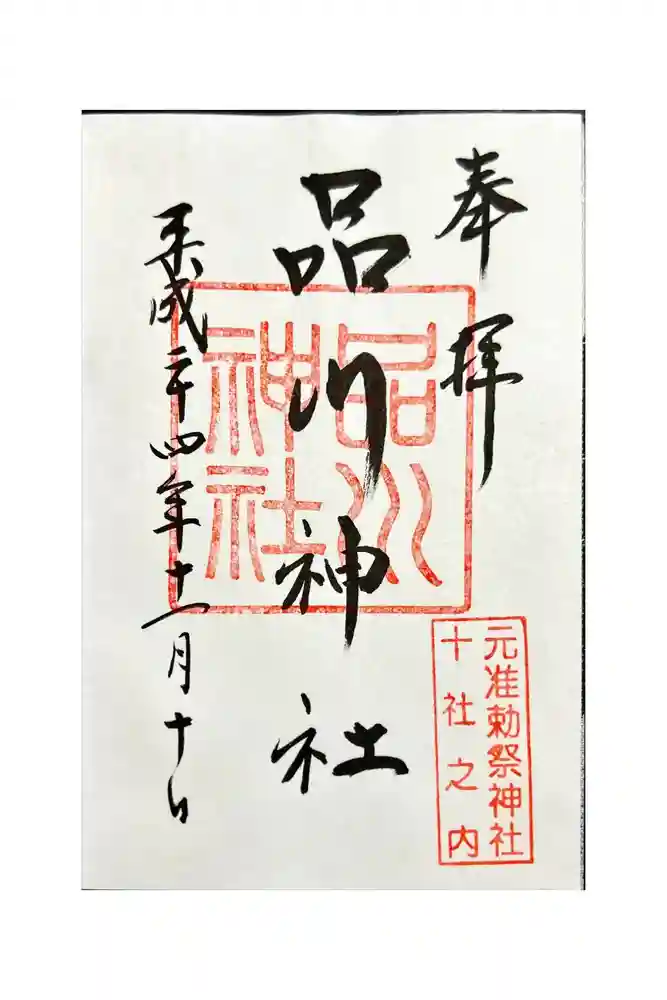 奉拝
元准勅祭神社
十社之内
品川神社
品川
神社
平成二十四年十一月十日